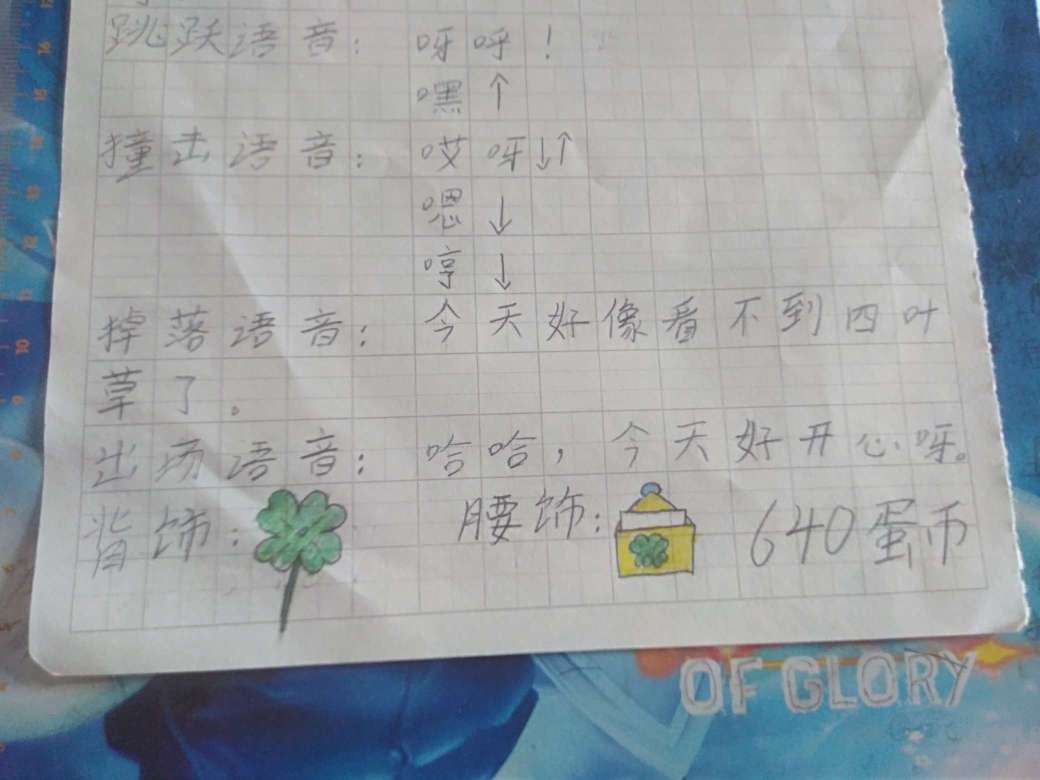 跳跃语音：呀呼！
嘿↑
撞击语音：哎呀↓↑
嗯↓
哼↓
掉落语音：今天好像看不到四叶
草了。
出场语音：哈哈，今天好开心呀。
背饰： 腰饰： 640蛋币
OF GLORY